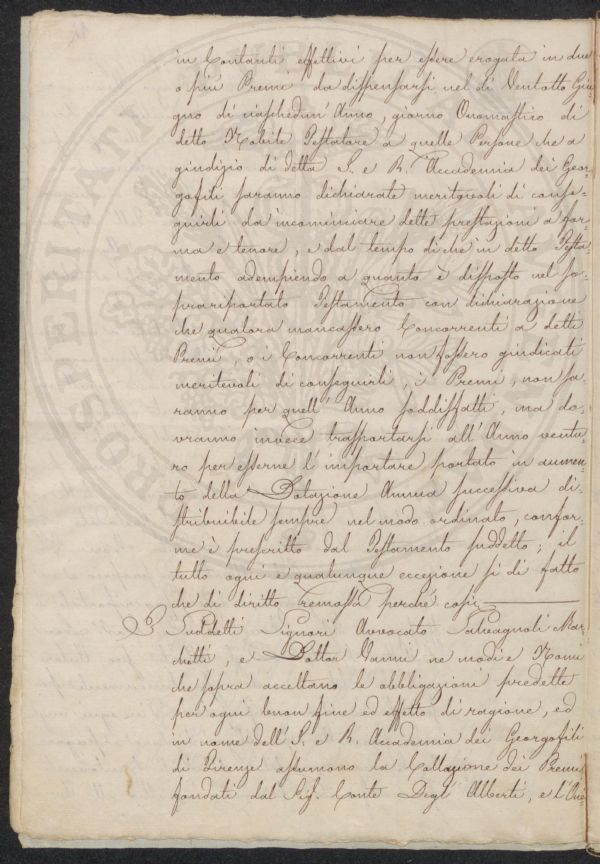 in Contanti effettivi per essere erogata in due
o più Premi da dispensarsi nel dì Ventotto Giu=
gno di ciaschedun' Anno, giorno Onomastico di
detto Nobile Testatore a quelle Persone che a
giudizio di detta I. e R. Accademia dei Geor=
gofili saranno dichiarate meritevoli di conse=
guirli da incominciare dette prestazioni a for=
ma e tenore, e dal tempo di che in detto Testa=
mento adempiendo a quanto è disposto nel so=
prariportato Testamento con dichiarazione
che qualora mancassero Concorrenti a detti
Premi, o i Concorrenti non fossero giudicati
meritevoli di conseguirli, i Premi, non sa=
ranno per quell' Anno soddisfatti, ma do=
vranno invece trasportarsi all' Anno ventu=
ro per esserne l' importare portato in aumen=
to della Dotazione Annua successiva di=
stribuibile sempre nel modo ordinato, confor=
me è prescritto dal Testamento suddetto; il
tutto ogni e qualunque eccezione sì di fatto
che di diritto remossa perché così
I Suddetti Signori Avvocato Salvagnoli Mar=
chetti, e Dottor Vanni ne modi e Nomi
che sopra accettano le obbligazioni predette
per ogni buon fine ed effetto di ragione, ed
in nome dell' I. e R. Accademia dei Georgofili
di Firenze assumono la Collazione dei Premi
fondati dal Sig. Conte Degli Alberti, e l'
PROSPERITATI